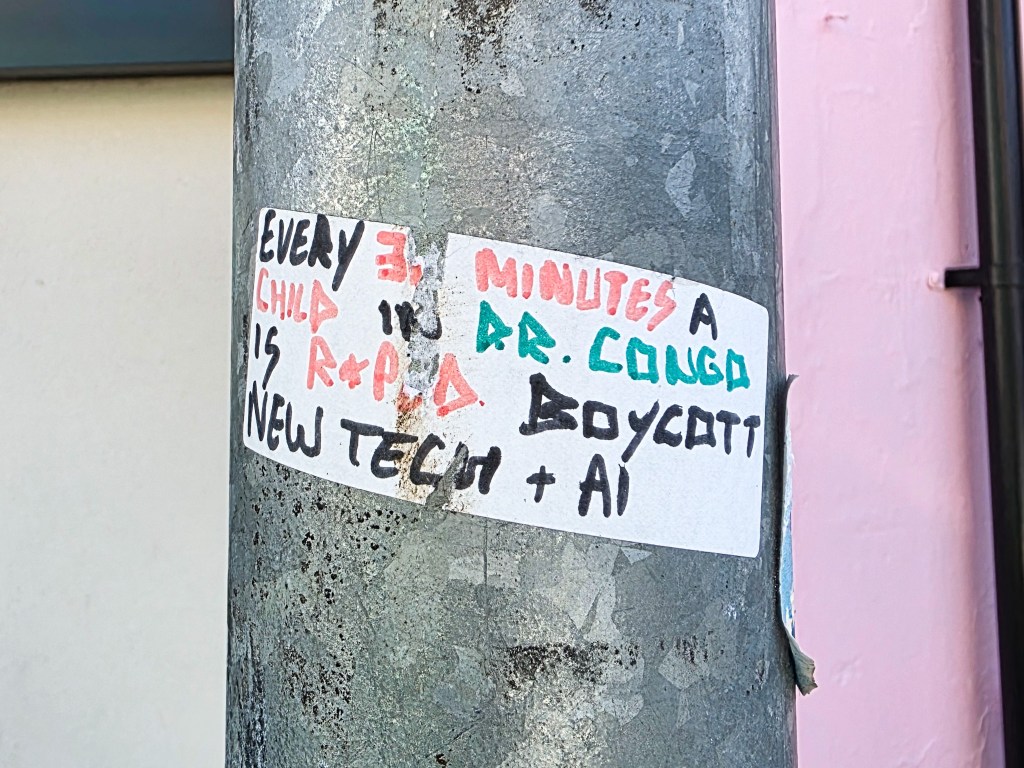 EVERY 3 MINUTES A
CHILD IN D.R. CONGO
IS R*P.D. BOYCOTT
NEW TECH + AI